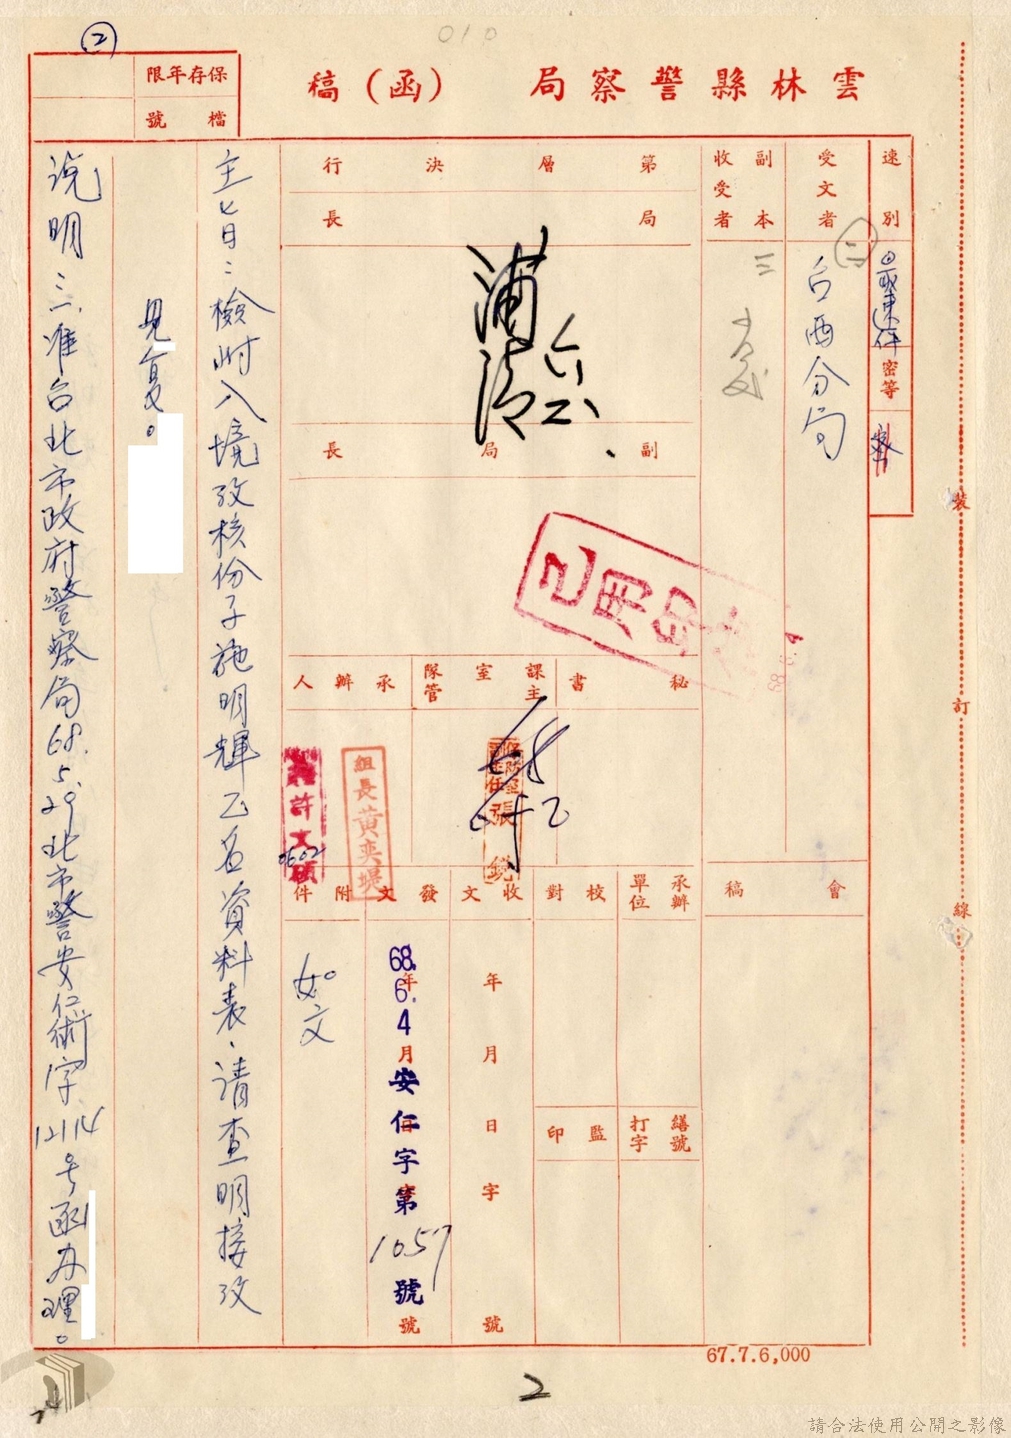 010
②
雲林縣警察局（函）稿
保存年限
檔號
速別
最速件
密等
密
受文者
台西分局
副本收受者
第一層決行
局長
副局長
秘書
課室主
隊管
承辦人
已用印
組長黃奕堤
許
0602
會稿
承辦單位
校對
收文
發文
附件
繕號打字
監印
年月日字號
68.6.4
安仁字第1057號
如文
主旨：檢附入境攷核份子施明輝乙名資料表、請查明接攷
見复。
說明：准台北市政府警察局68.5.29北市警安仁術字12114号函办理。
裝訂線
67.7.6,000
2
請合法使用公開之影像